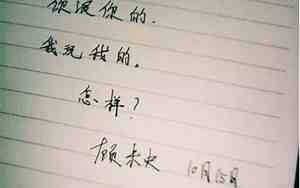 你滚你的.
我玩我的。
怎样?
顾未央 10月15日